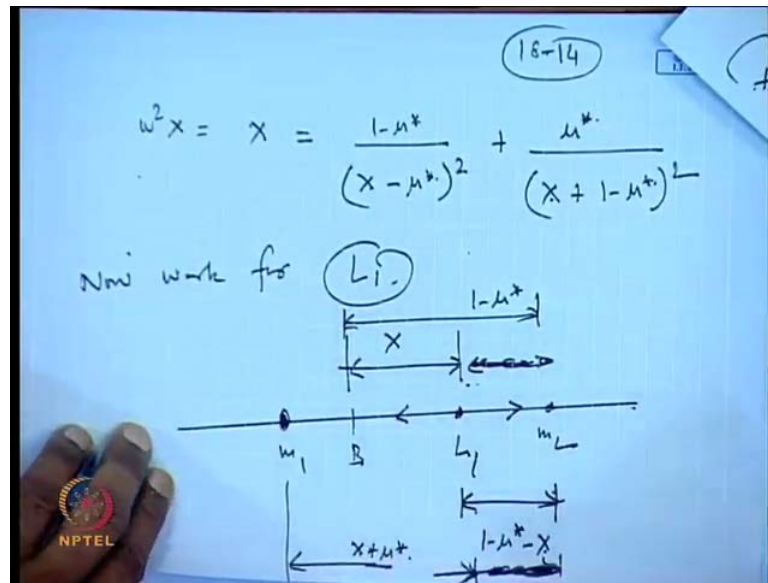 16-14
ω²x = x = (1-μ*)/(x-μ*)² + μ*/(x+1-μ*)²
Now work for L1.
1-μ*
x
m1 B L1 m2
x+μ* 1-μ*-x
NPTEL